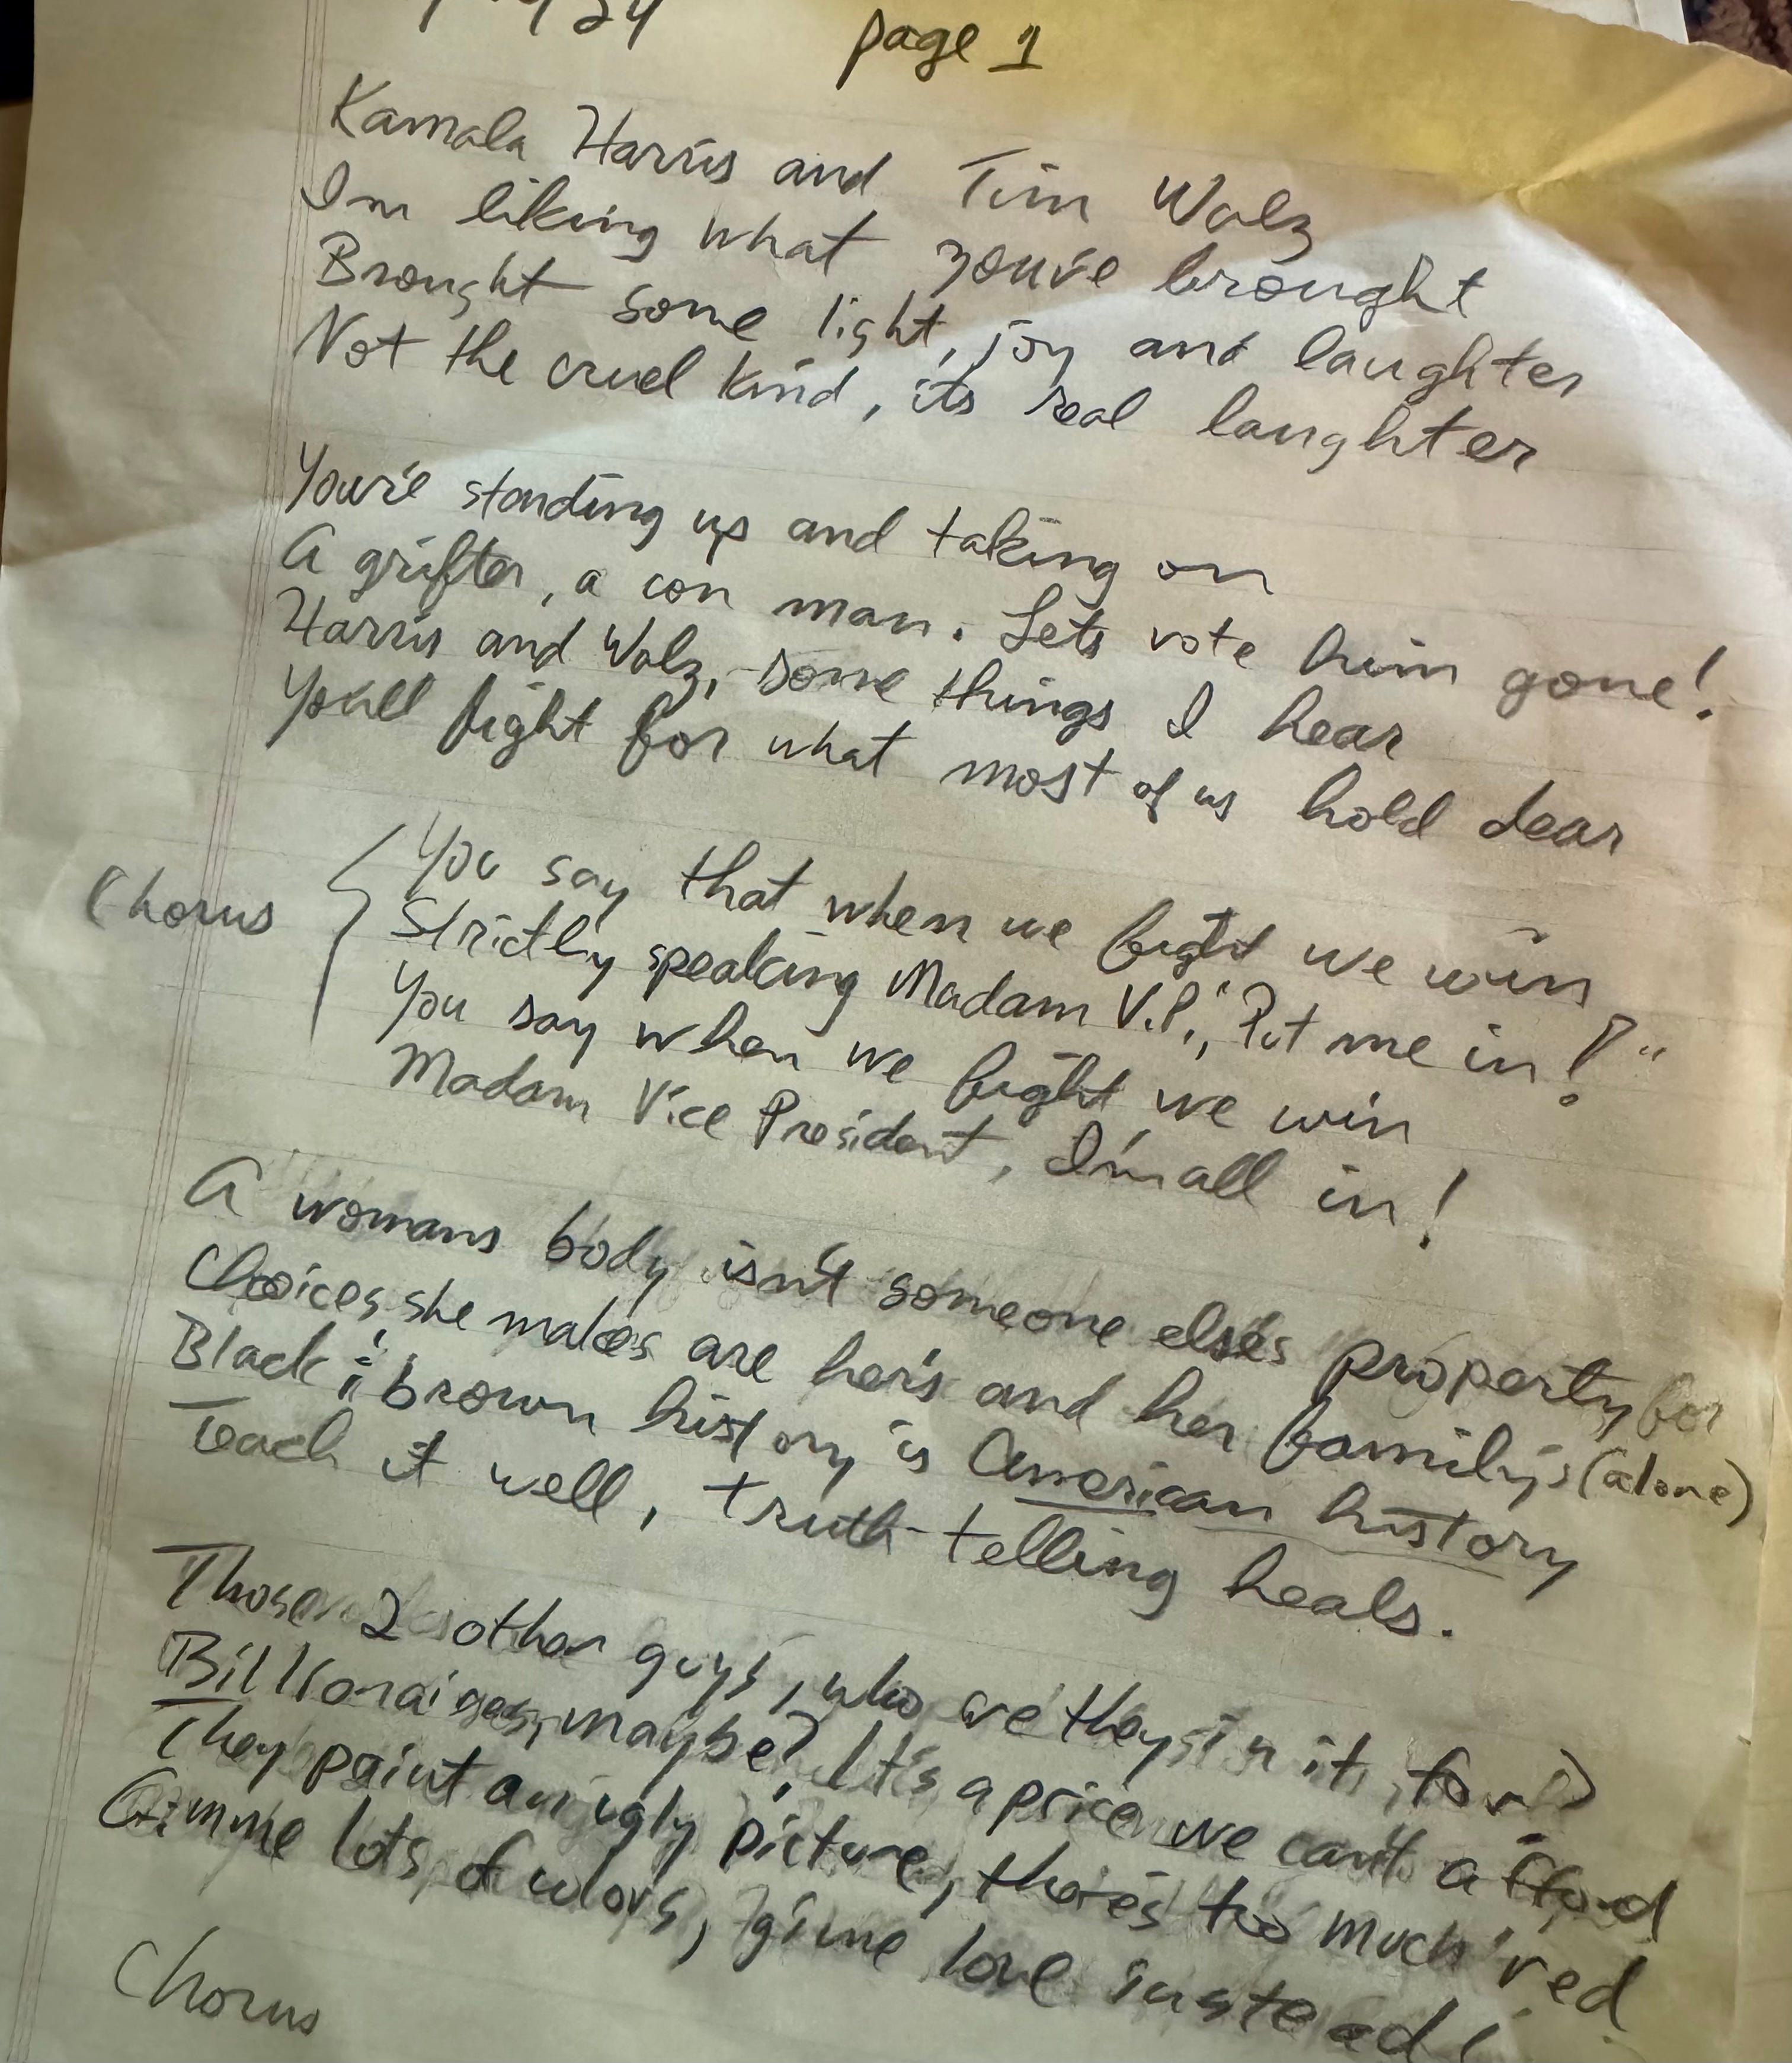 24
page 1
Kamala Harris and Tim Walz
Im liking what you've brought
Brought some light, joy and laughter
Not the cruel kind, its real laughter
You're standing up and taking on
A grifter, a con man. Lets vote him gone!
Harris and Walz, some things I hear
You'll fight for what most of us hold dear
Chorus
You say that when we fight we win
Strictly speaking Madam V.P., "Put me in!"
You say when we fight we win
Madam Vice President, I'm all in!
A womans body isn't someone else's property for
Choices she makes are her's and her family's (alone)
Black & brown history is American history
Teach it well, truth-telling heals.
Those 2 other guys, who are they in it for?
Billionaires, maybe? It's a price we can't afford
They paint an ugly picture, there's too much red
Gimme lots of colors, gimme love instead!
Chorus